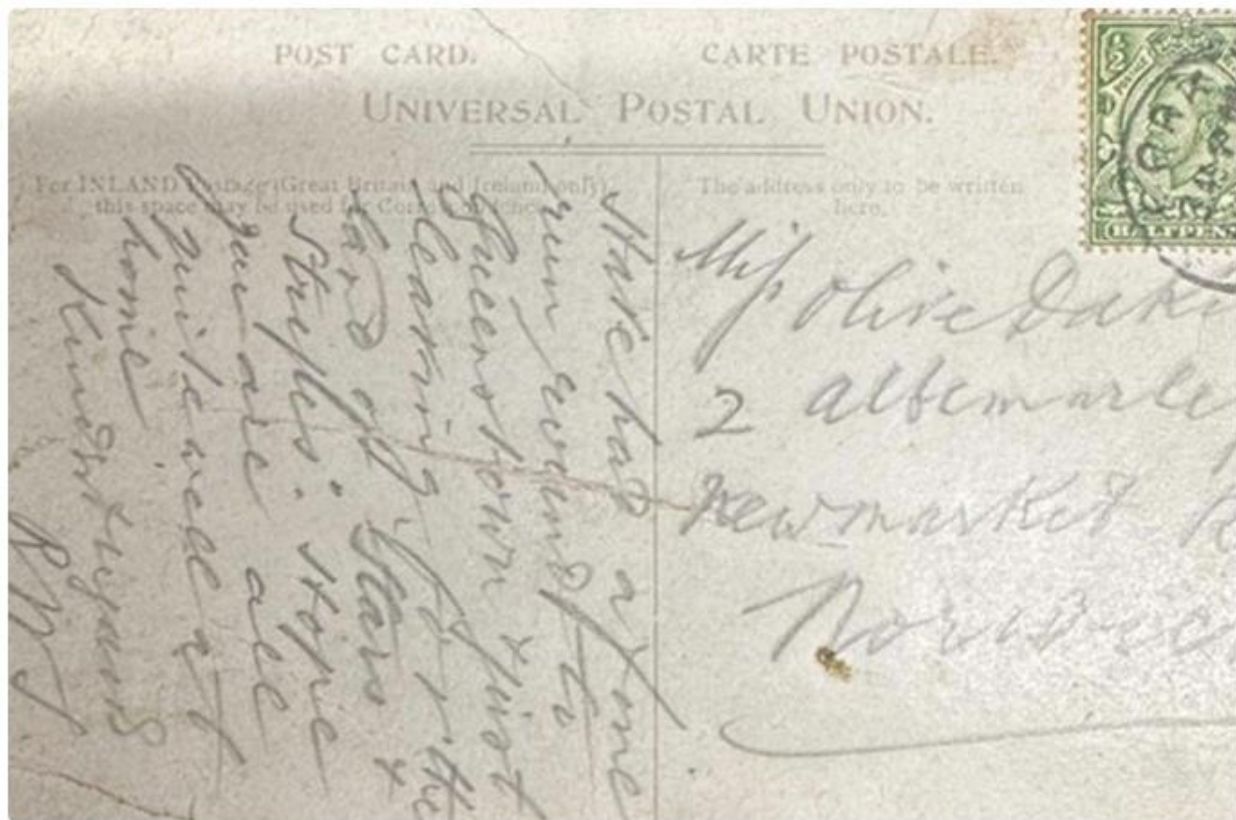 POST CARD.
CARTE POSTALE.
UNIVERSAL POSTAL UNION.
For INLAND Postage (Great Britain and Ireland only)
this space may be used for Correspondence.
The address only to be written
here.
Have had a fine
run round to
Queenstown & just
leaving for the
land of Stars &
Stripes. Hope
you are all
quite well at
home
Kind regards
Miss Olive
2 albemarle
Newmarket R
Norwic
1/2
HALFPENN